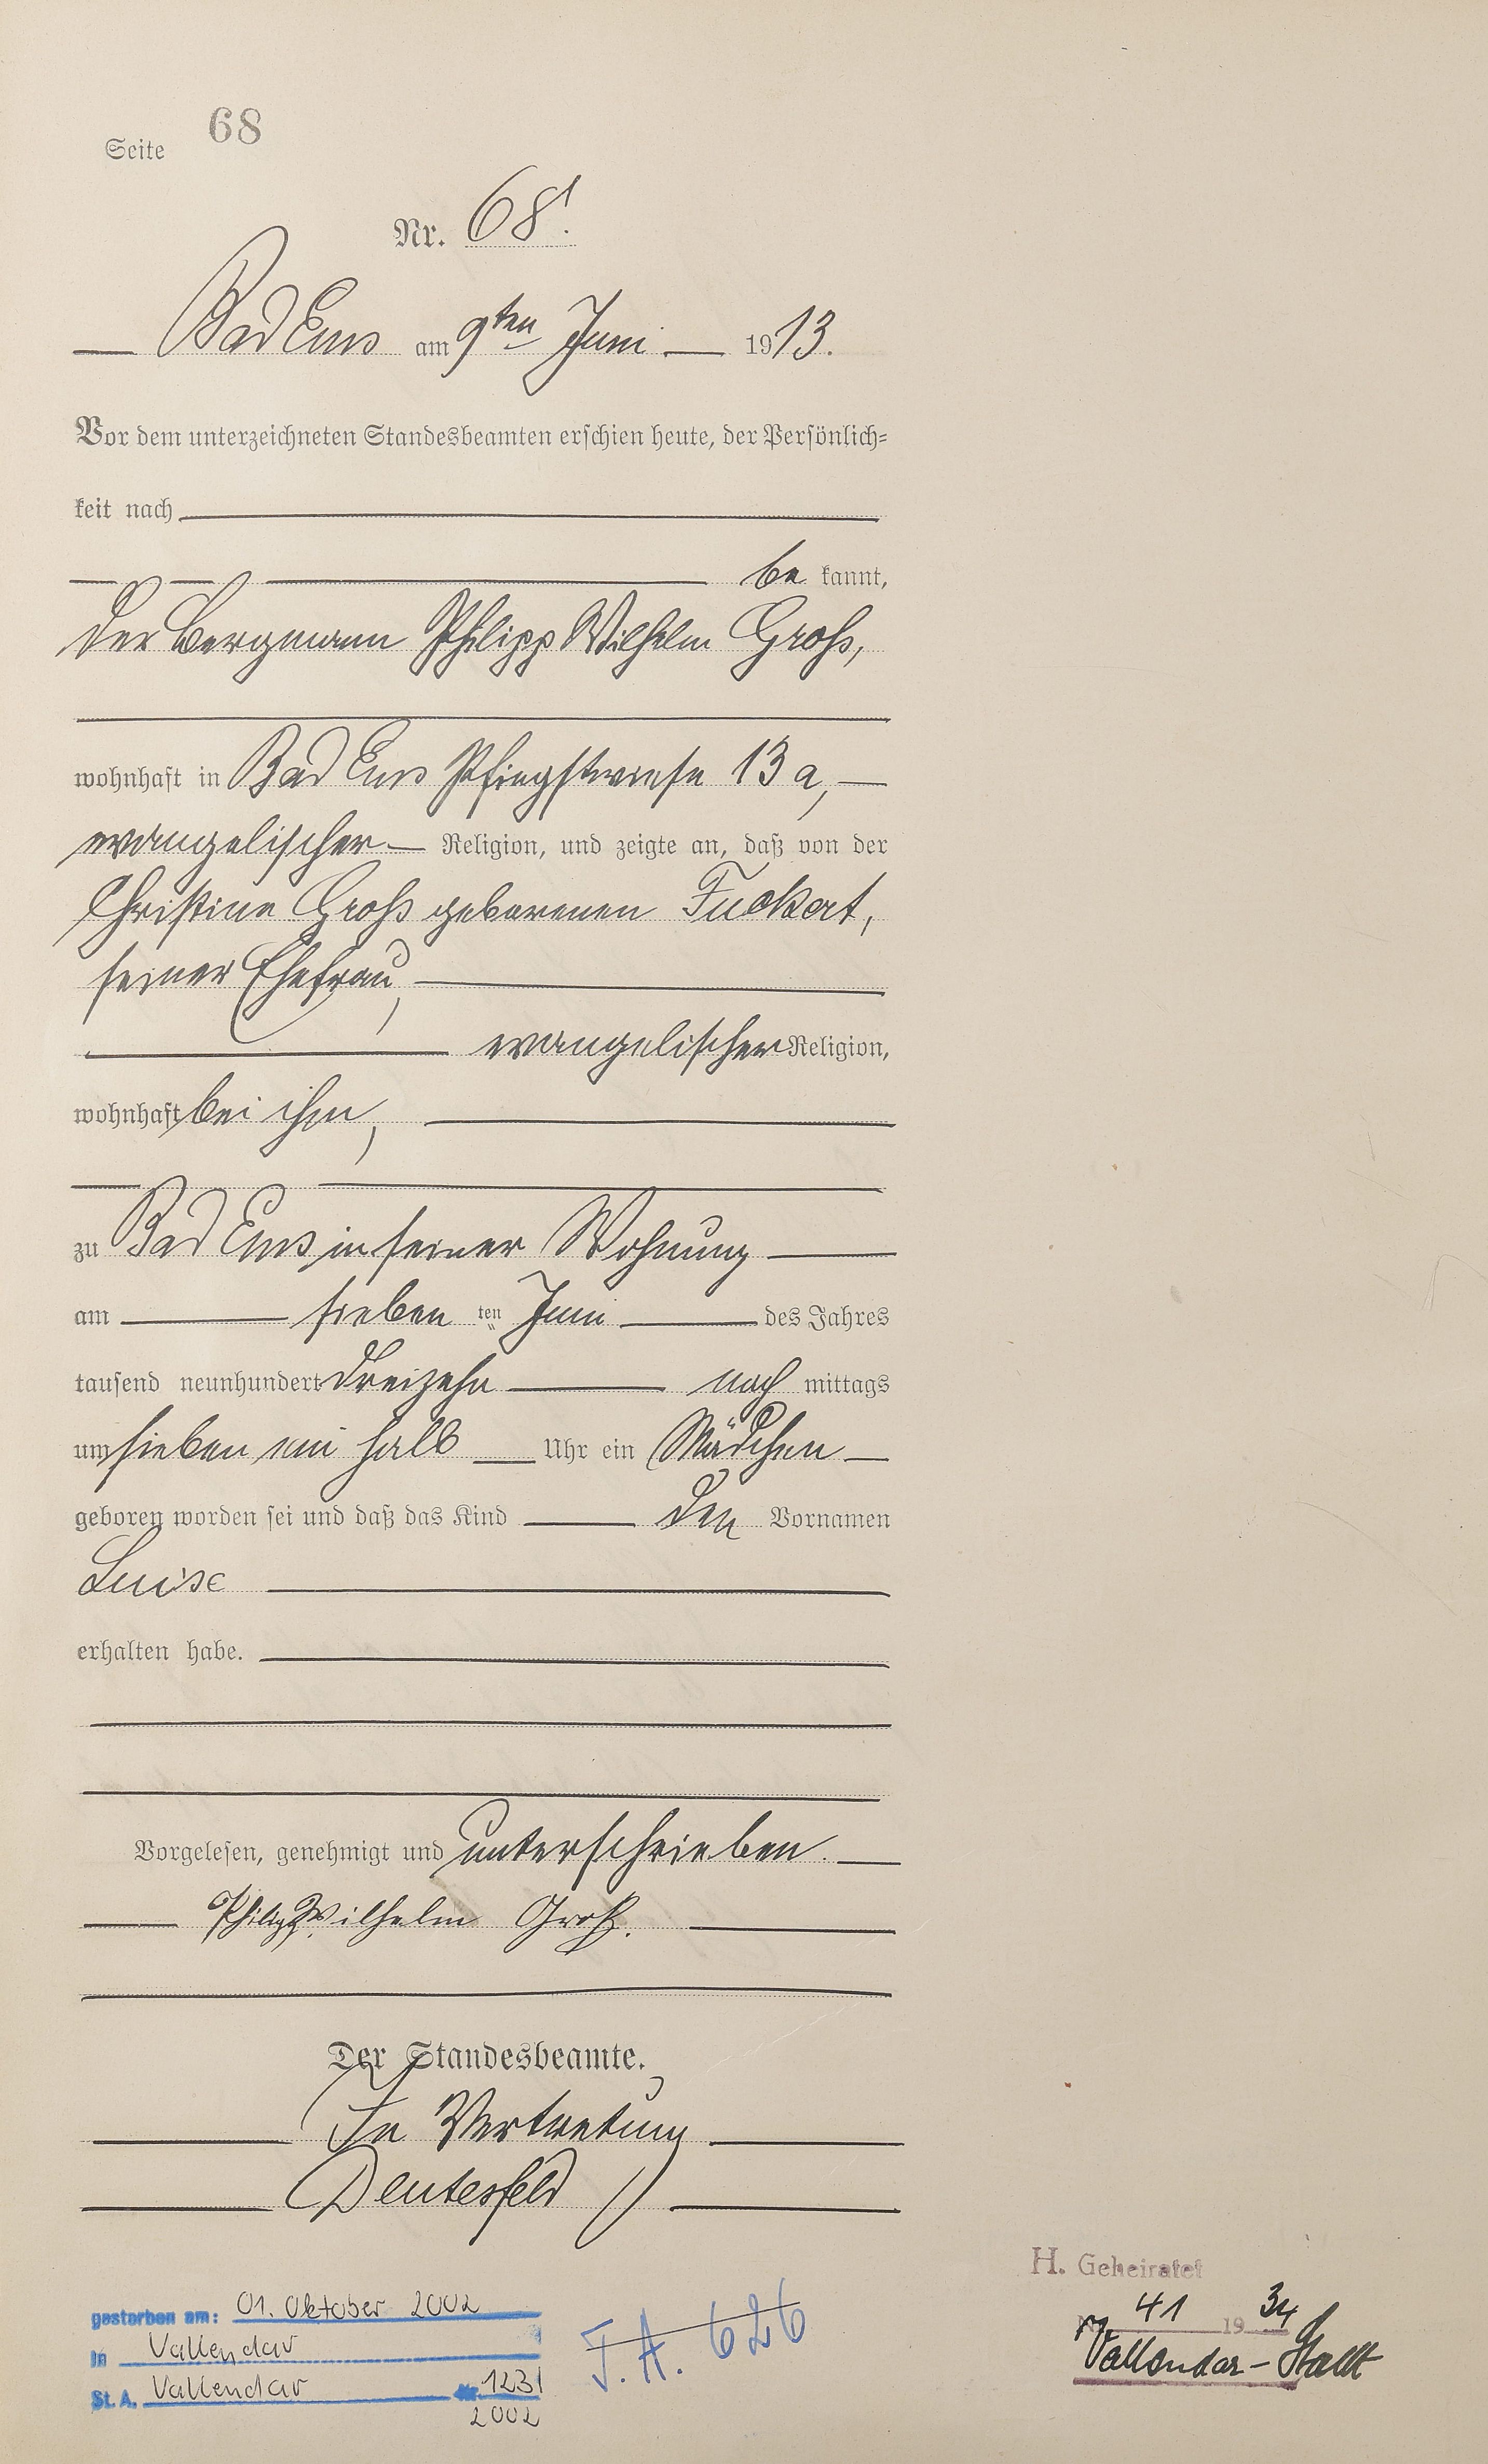 Seite 68
Nr. 68.
Bad Ems am 9ten Juni 1913.
Vor dem unterzeichneten Standesbeamten erschien heute, der Persönlich=
keit nach
be kannt,
der Bergmann Philipp Wilhelm Groß,
wohnhaft in Bad Ems Pfingstwiese 13a,
evangelischer Religion, und zeigte an, daß von der
Christine Groß geborenen Fuckert,
seiner Ehefrau,
evangelischer Religion,
wohnhaft bei ihm,
zu Bad Ems in seiner Wohnung
am sieben ten Juni des Jahres
tausend neunhundert dreizehn nach mittags
um sieben ein halb Uhr ein Mädchen
geboren worden sei und daß das Kind den Vornamen
Luise
erhalten habe.
Vorgelesen, genehmigt und unterschrieben.
Philipp Wilhelm Groß.
Der Standesbeamte.
In Vertretung
H. Geheiratet
gestorben am: 01. Oktober 2002
Nr. 41 1934
in Vallendar
Vallendar-Stadt
St. A. Vallendar Nr. 1231
2002
F.A. 626